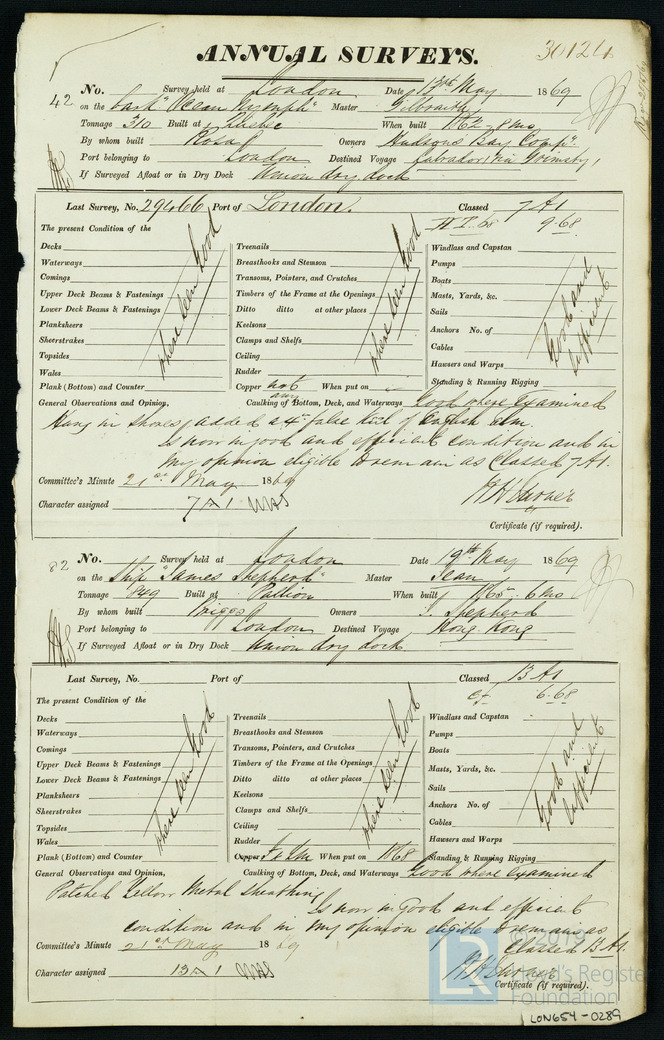 ANNUAL SURVEYS.
30124
42
No. Survey held at London Date 13th May 1869
on the bark "Ocean Nymph" Master Gilbraith
Tonnage 310 Built at Quebec When built 1862 - 8 mo
By whom built Rosa Owners Hudsons Bay Compy.
Port belonging to London Destined Voyage Labrador
If Surveyed Afloat or in Dry Dock Union dry dock
Last Survey, No. 29466 Port of London. Classed 7 A1
9.68
The present Condition of the
Decks
Waterways
Comings
Upper Deck Beams & Fastenings
Lower Deck Beams & Fastenings
Planksheers
Sheerstrakes
Topsides
Wales
Plank (Bottom) and Counter
where seen Good
Treenails
Breasthooks and Stemson
Transoms, Pointers, and Crutches
Timbers of the Frame at the Openings
Ditto ditto at other places
Keelsons
Clamps and Shelfs
Ceiling
Rudder
Copper not any When put on
where seen Good
Windlass and Capstan
Pumps
Boats
Masts, Yards, &c.
Sails
Anchors No. of
Cables
Hawsers and Warps
Standing & Running Rigging
Good and sufficient
General Observations and Opinion, Caulking of Bottom, Deck, and Waterways Good where examined
Hung in shores, added a 4in. false keel of English elm.
Is now in good and efficient condition and in
my opinion eligible to remain as Classed 7 A1.
Committee's Minute 21st May 1869
Character assigned 7 A 1
Certificate (if required).
82
No. Survey held at London Date 19th May 1869
on the Ship "James Shepherd" Master Jean
Tonnage 849 Built at Pallion When built 1865 - 6 mo
By whom built Briggs Owners J. Shepherd
Port belonging to London Destined Voyage Hong Kong
If Surveyed Afloat or in Dry Dock Union dry dock
Last Survey, No. Port of Classed B A1
6.68
The present Condition of the
Decks
Waterways
Comings
Upper Deck Beams & Fastenings
Lower Deck Beams & Fastenings
Planksheers
Sheerstrakes
Topsides
Wales
Plank (Bottom) and Counter
where seen Good
Treenails
Breasthooks and Stemson
Transoms, Pointers, and Crutches
Timbers of the Frame at the Openings
Ditto ditto at other places
Keelsons
Clamps and Shelfs
Ceiling
Rudder
Copper When put on 1868
where seen Good
Windlass and Capstan
Pumps
Boats
Masts, Yards, &c.
Sails
Anchors No. of
Cables
Hawsers and Warps
Standing & Running Rigging
Good and sufficient
General Observations and Opinion, Caulking of Bottom, Deck, and Waterways Good where examined
Patched Yellow Metal sheathing
Is now in Good and efficient
condition and in my opinion eligible to remain as
Classed B A1.
Committee's Minute 21st May 1869
Character assigned B A 1
Certificate (if required).
© 2019
Lloyd's Register
Foundation
LON654-0289